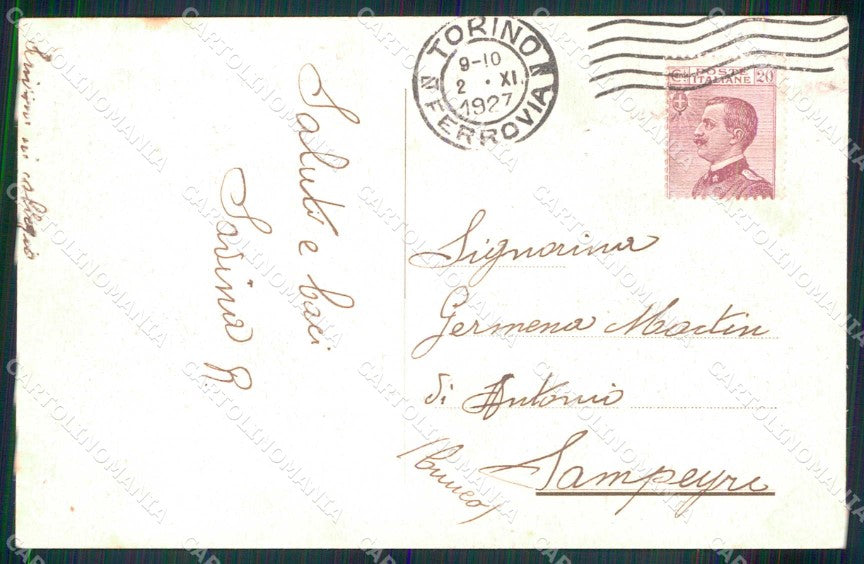 TORINO
FERROVIA
9-10
2 • XI
1927
C. POSTE 20
ITALIANE
Saluti e baci
Savina R
Signorina
Germena Martin
di Antonio
Sampeyre
(Cuneo)
CARTOLINOMANIA